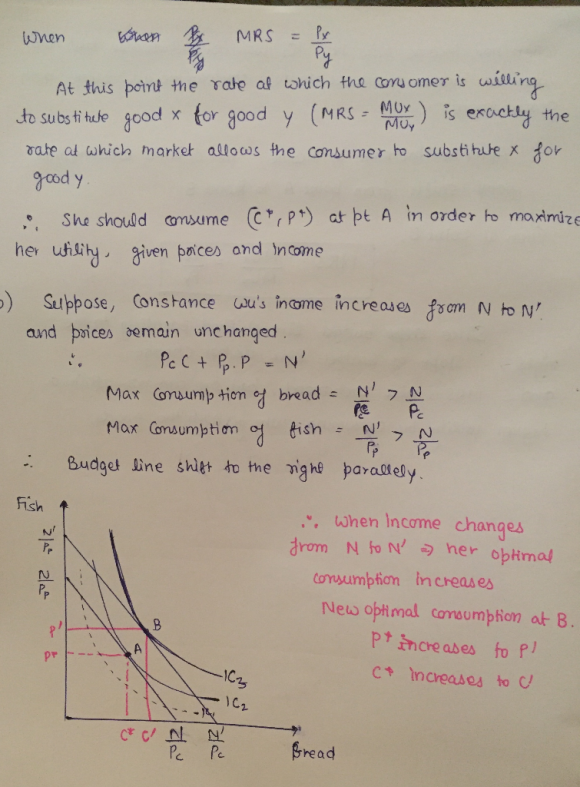 When MRS = Px/Py
At this point the rate at which the consomer is willing
to substitute good x for good y (MRS = MUx/MUy) is exactly the
rate at which market allows the consumer to substitute x for
good y.
∴ She should consume (C*, P*) at pt A in order to maximize
her utility, given prices and income
b) Suppose, Constance wu's income increases from N to N'
and prices remain unchanged.
∴ PcC + Pp.P = N'
Max Consumption of bread = N'/Pc > N/Pc
Max Consumption of fish = N'/Pp > N/Pp
∴ Budget line shift to the right parallely.
Fish
N'/Pp
N/Pp
P'
P*
A
B
IC3
IC2
IC1
C* C' N/Pc N'/Pc Bread
∴ When Income changes
from N to N' ⇒ her optimal
consumption increases
New optimal consumption at B.
P* increases to P'
C* increases to C'